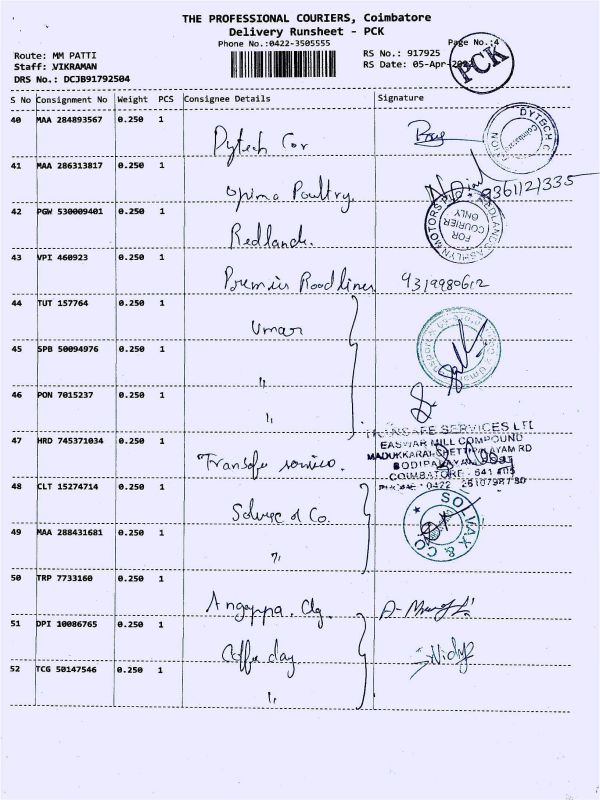 THE PROFESSIONAL COURIERS, Coimbatore
Delivery Runsheet - PCK
Phone No.:0422-3505555
Page No.:4
Route: MM PATTI
RS No.: 917925
Staff: VIKRAMAN
RS Date: 05-Apr-
PCK
DRS No.: DCJB91792504
S No Consignment No Weight PCS Consignee Details Signature
40 MAA 284893567 0.250 1
Dytech Cor
DYTECH
Coimbatore
41 MAA 286313817 0.250 1
Opima Poultry.
9361121335
42 PGW 530009401 0.250 1
Redlands.
REDLANDS ASHLYN MOTORS PLC
FOR COURIER ONLY
43 VPI 460923 0.250 1
Premier Roadlines 9319980612
44 TUT 157764 0.250 1
Umar
45 SPB 50094976 0.250 1
"
46 PON 7015237 0.250 1
"
TRANSAFE SERVICES LTD
EASWAR MILL COMPOUND
47 HRD 745371034 0.250 1
MADUKKARAI-CHETTIPALAYAM RD
BODIPALAYAM POST
Transafe service.
COIMBATORE - 641 105
48 CLT 15274714 0.250 1
0422
Solvac & Co.
SOLVAX & CO
49 MAA 288431681 0.250 1
"
50 TRP 7733160 0.250 1
Angappa. Clg.
51 DPI 10086765 0.250 1
Coffee day
Vidya
52 TCG 50147546 0.250 1
"